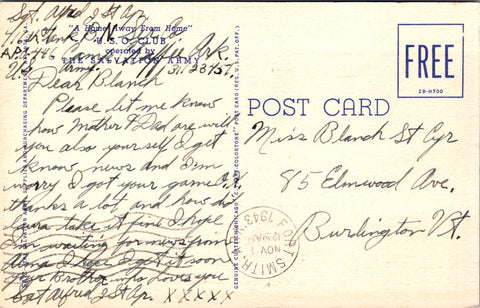 Sgt. Alfred J St Cyr
"A Home Away From Home"
U.S.O. CLUB
operated by
THE SALVATION ARMY
Ark.
Army. 31128457.
Dear Blanch
Please let me know
how Mother & Dad are will
you also yourself I get
know news and I'm
worry I got your game O.K.
thanks a lot and how do
you take it fine I hope
I'm waiting for news from
I hope I get it soon
your Brother who loves you
Sgt Alfred J St Cyr. X X X X X
FREE
2B-H700
POST CARD
Miss Blanch St Cyr
85 Elmwood Ave.
Burlington Vt.
FORT SMITH,
NOV 1
12 30 AM
1943
GENUINE CURTEICH-CHICAGO "C.T. COLORTONE" POST CARD (REG. U.S. PAT. OFF.)